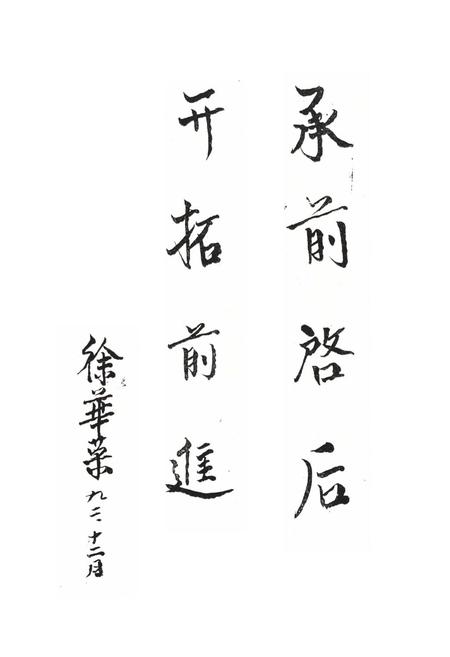 承前啓后
开拓前進
徐華荣九二十二月